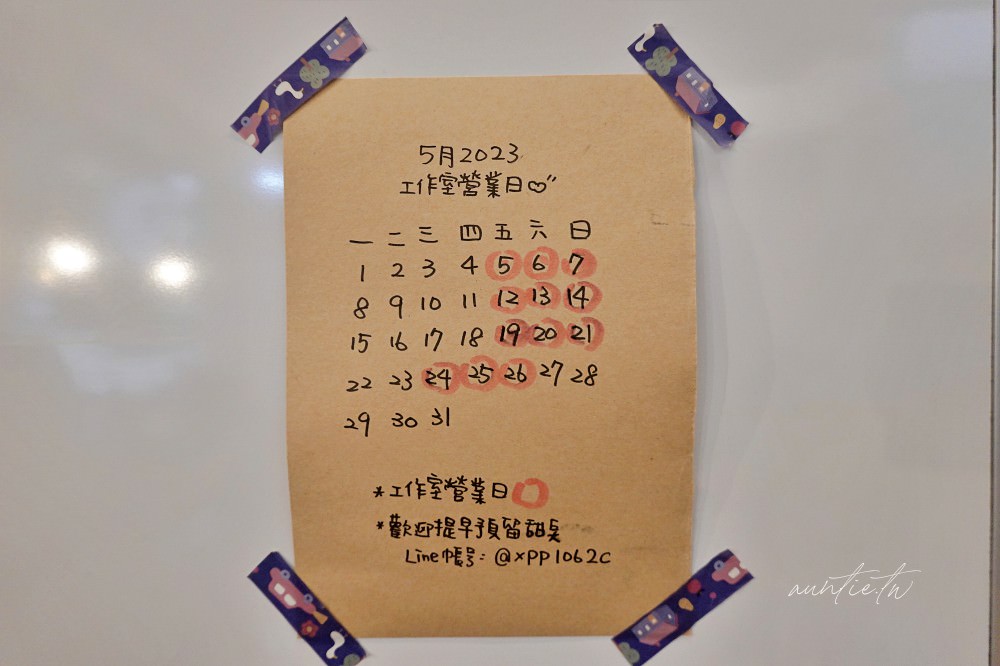 5月2023
工作室營業日♡"
一 二 三 四 五 六 日
1 2 3 4 5 6 7
8 9 10 11 12 13 14
15 16 17 18 19 20 21
22 23 24 25 26 27 28
29 30 31
*工作室營業日○
*歡迎提早預留甜臭
Line帳号:@xpp1062c
auntie.tw